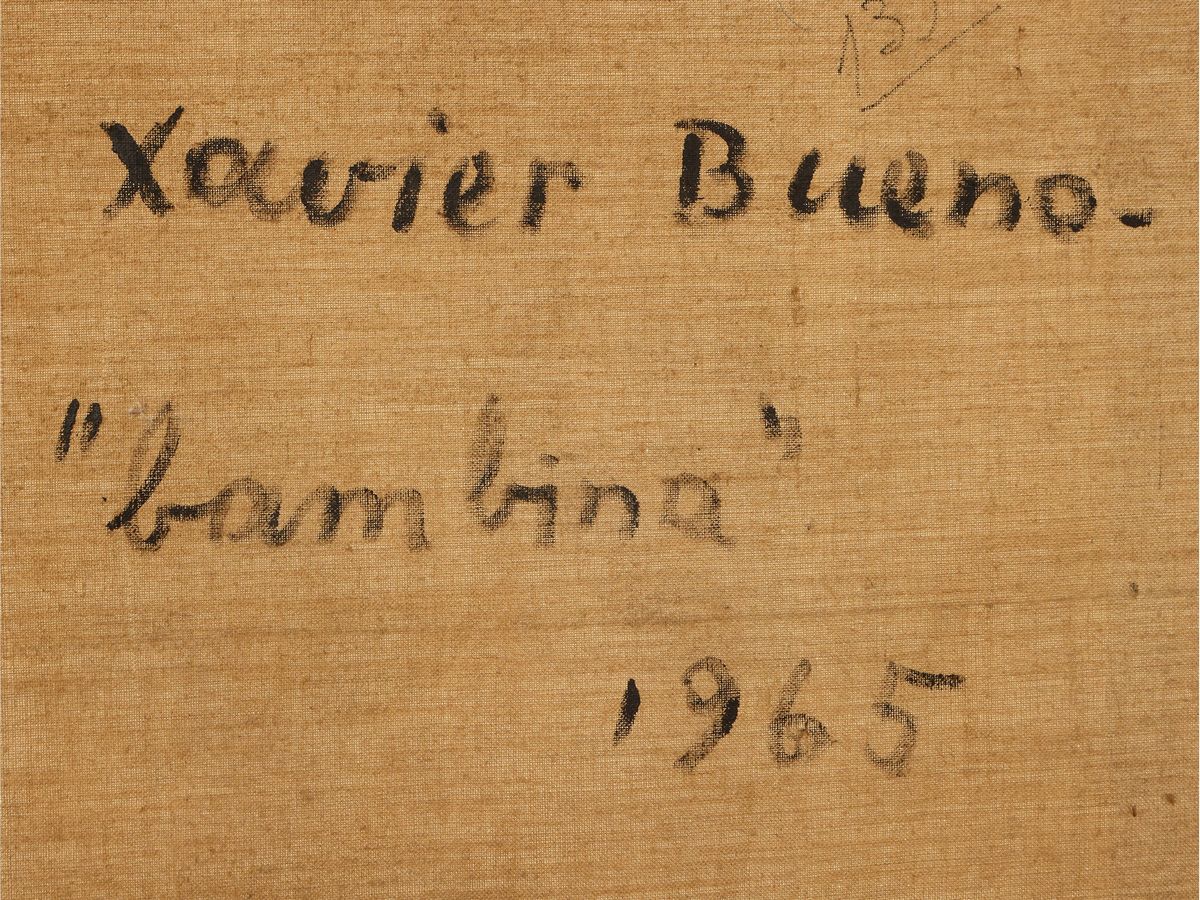 Xavier Bueno-
"bambina"
1965